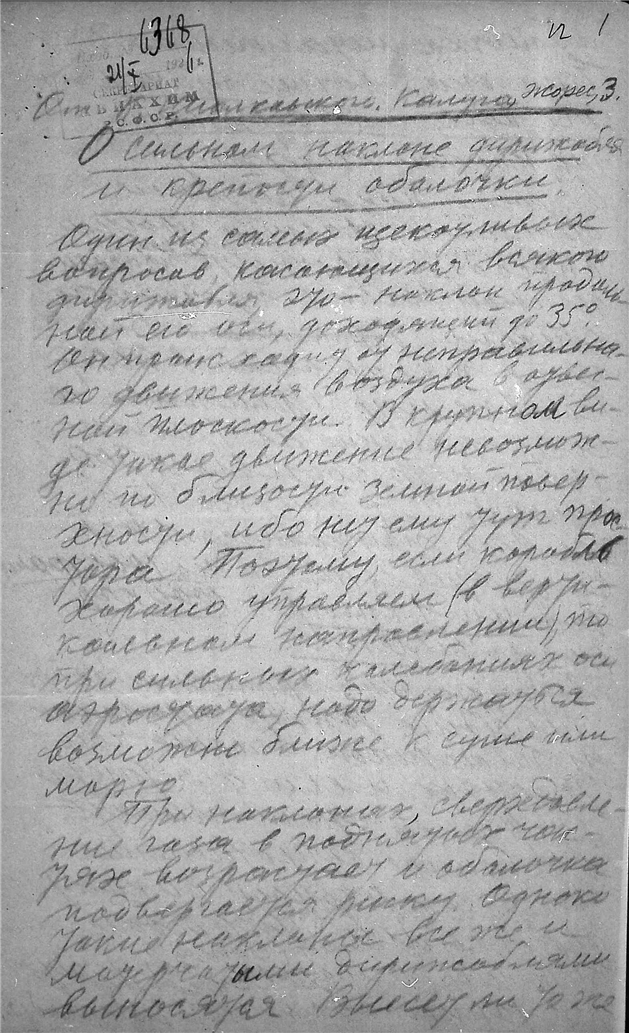 6368
п 1
21/X
192 г.
СЕКРЕТАРИАТ
АВИАХИМ
Р.С.Ф.С.Р.
От Циолковского. Калуга, Жорес, 3.
О сильном наклоне дирижабля
и крепости оболочки.
Один из самых щекотливых
вопросов, касающихся всякого
дирижабля это – наклон продоль-
ной его оси, доходящий до 35°.
Он происходит от неправильно-
го движения воздуха в отвес-
ной плоскости. В крупном ви-
де такое движение невозмож-
но по близости земной повер-
хности, ибо нет ему тут прос-
тора. Поэтому, если корабль
хорошо управляем (в верти-
кальном направлении), то
при сильных колебаниях оси
аэростата, надо держаться
возможно ближе к суше или
морю.
При наклонах, сверхдавле-
ние газа в поднятых час-
тях возрастает и оболочка
подвергается риску. Однако
такие наклоны все же и
матерчатыми дирижаблями
выносятся. Вынесут ли то же